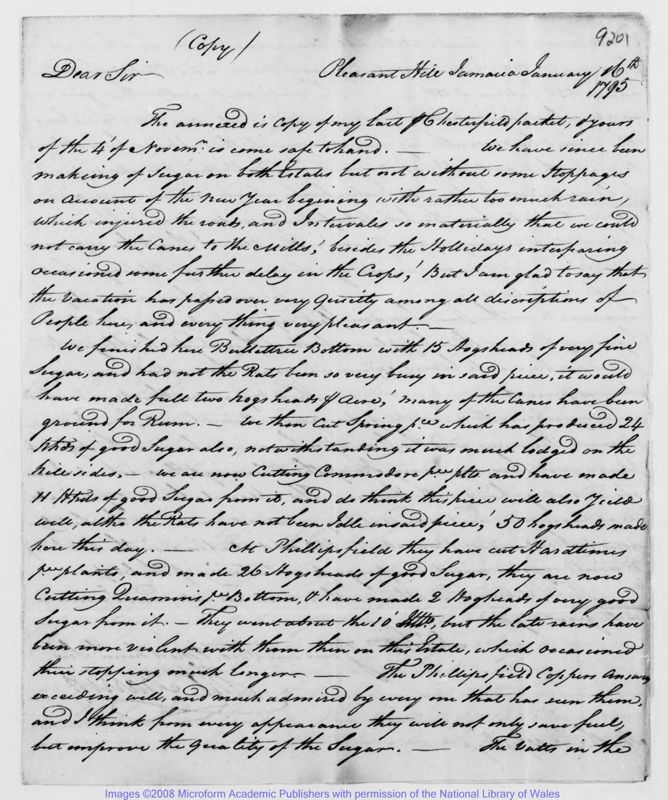 9201
(Copy)
Dear Sir Pleasant Hill Jamaica January 16th
1795
The annexed is Copy of my last p Chesterfield packet, & yours
of the 4th of Novemr. is come safe to hand. — We have since been
makeing of Sugar on both Estates but not without some Stoppages
on account of the New Year begining with rather too much rain,
which injured the roads, and Intervales so materially that we could
not carry the Canes to the Mills, besides the Hollidays interfaring
occasioned some further delay in the Crops, But I am glad to say that
the Vacation has passed over very quietly among all discriptions of
People here, and every thing very pleasant. —
We finished here Bullettree Bottom with 15 Hogsheads of very fine
Sugar, and had not the Rats been so very busy in said piece, it would
have made full two hogsheads p Acre, many of the Canes have been
ground for Rum. — We then Cut Spring pce which has produced 24
Hhds of good Sugar also, notwithstanding it was much lodged on the
hill sides, — we are now Cutting Commodore pce plts and have made
11 Hhds of good Sugar from it, and do think this piece will also Yield
well, altho the Rats have not been Idle in said piece, 50 hogsheads made
here this day. — At Phillipsfield they have cut Hardtimes
pce plants, and made 26 Hogsheads of good Sugar, they are now
Cutting Quamins pce Bottom, & have made 2 Hogheads of very good
Sugar from it. — They went about the 10th but the late rains have
been more violent with them then on this Estate, which occasioned
their stopping much longer. — The Phillipsfield Coppers Answer
exceeding well, and much admired by every one that has seen them,
and I think from every appearance they will not only save fuel,
but improve the quality of the Sugar. — The Vatts in the
Images ©2008 Microform Academic Publishers with permission of the National Library of Wales